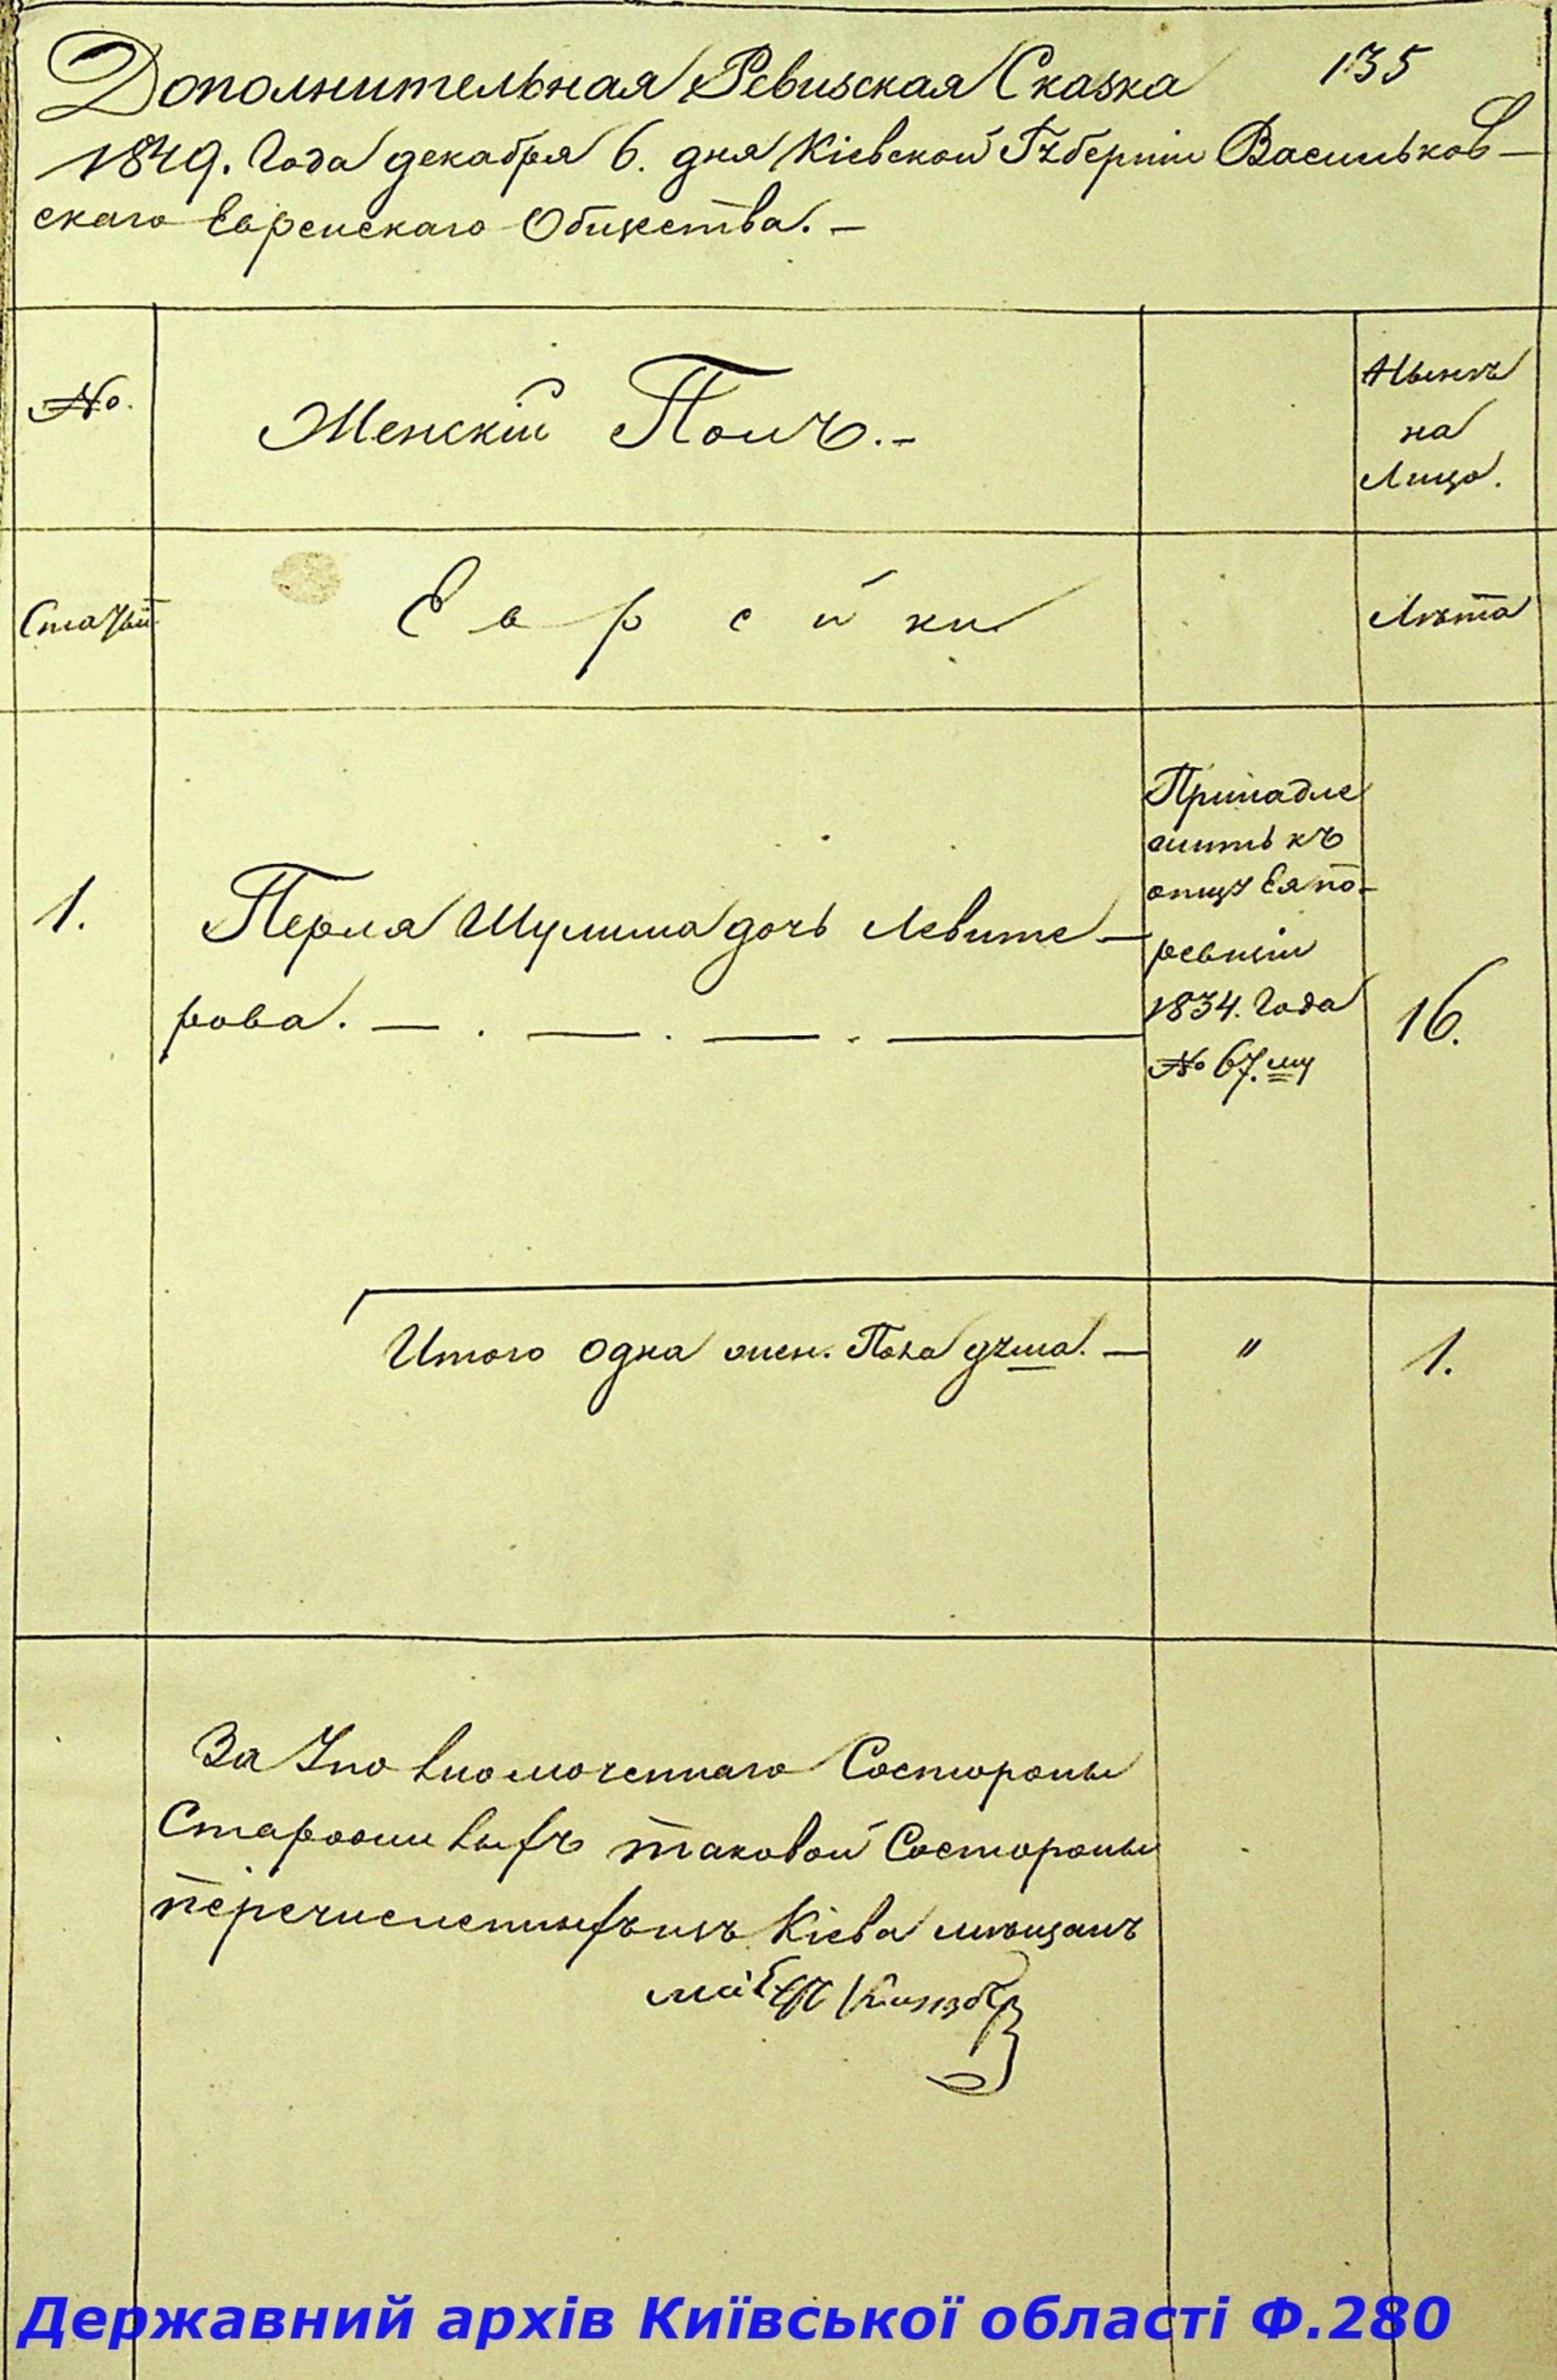 Дополнительная Ревизская Сказка 135
1849. Года декабря 6. дня Кіевской Губерніи Васильков-
скаго Еврейскаго Общества. —
№.
Женскій Полъ. —
Нынѣ
на
Лицо.
Статьи
Еврейки
Лѣта
Принадле
житъ къ
отцу Ея по-
ревизіи
1834. Года
№ 67. му
1. Перля Шулима дочь Левите-
рова. — . — . — . — 16.
Итого одна жен. Пола душа. — " 1.
За Уповномоченнаго Состороны
Старожилыхъ таковой Состороны
перечисленныхъ изъ Кіева мѣщанъ
Державний архів Київської області Ф.280